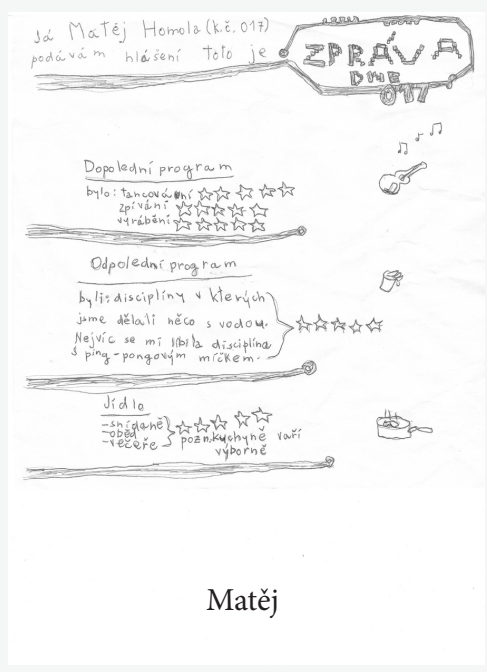 Já Matěj Homola (k.č. 017)
podávám hlášení toto je
ZPRÁVA
DNE
017
Dopolední program
bylo: tancování
zpívání
vyrábění
Odpolední program
byli: disciplíny v kterých
jsme dělali něco s vodou.
Nejvíc se mi líbila disciplína
s ping-pongovým míčkem.
Jídlo
-snídaně
-oběd
-večeře
pozn. kuchyně vaří
výborně
Matěj